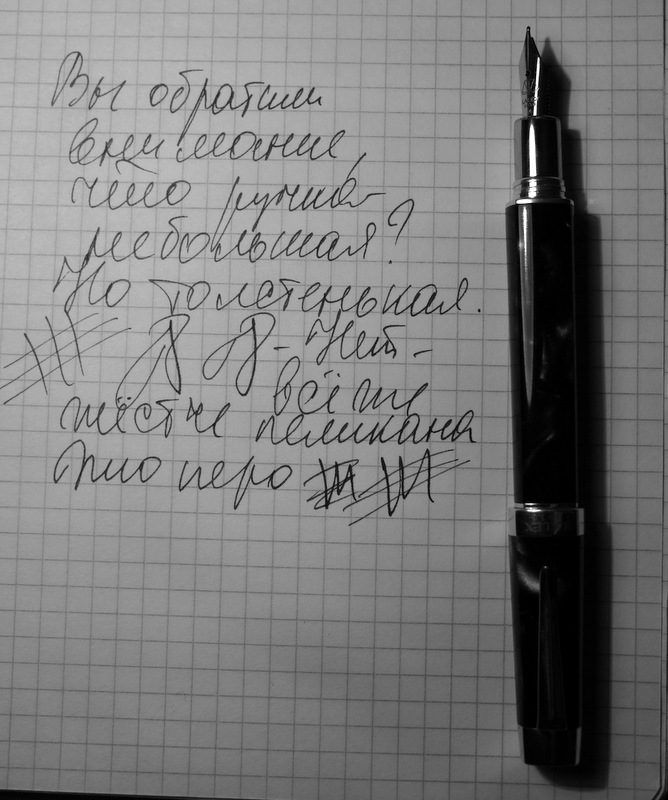 Вы обратили
внимание,
что ручка-
небольшая?
Но толстенькая.
- Нет -
всё же
жёстче пеликана
это перо